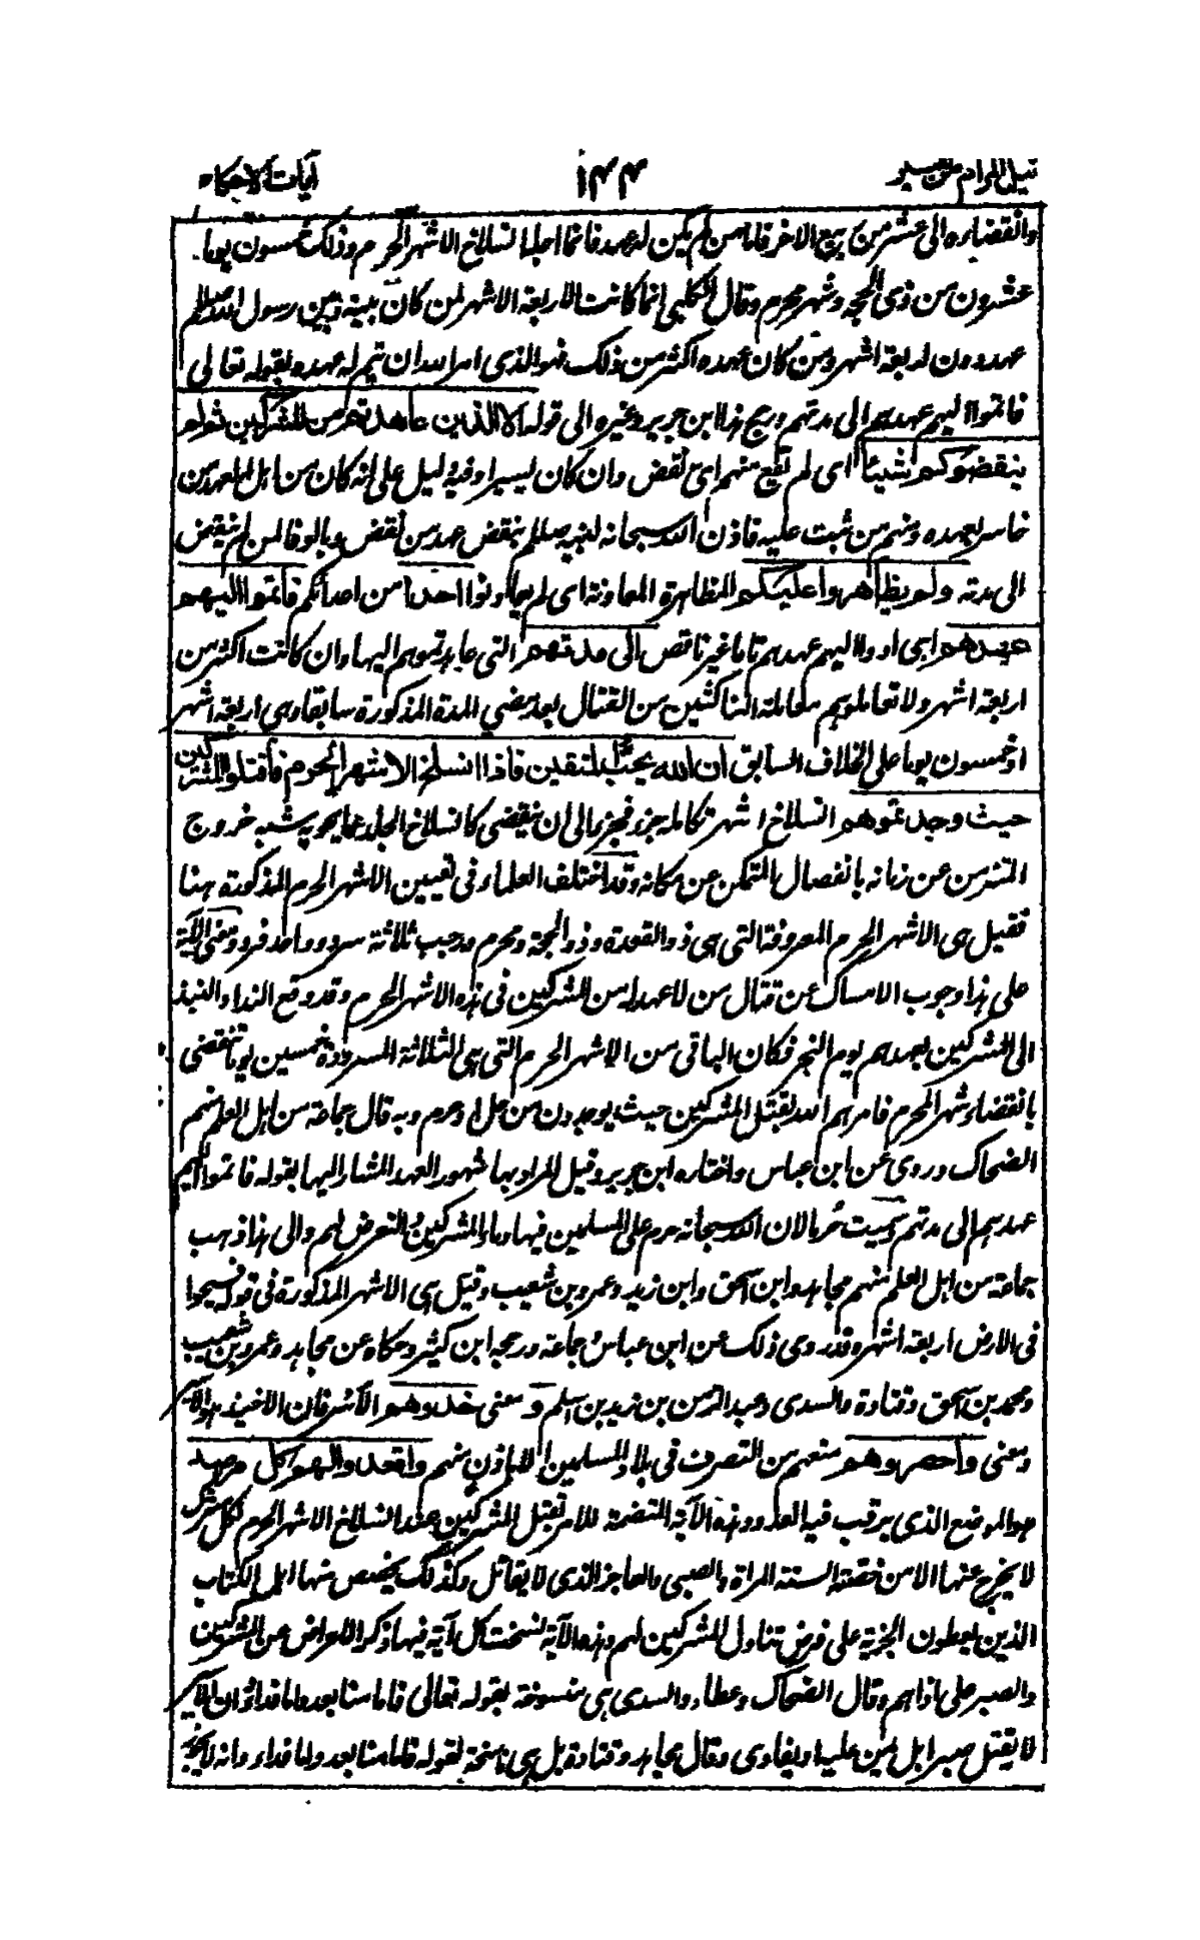 نيل المرام من تفسير ١٤٤ آيات الاحكام
وانقضاءه الى عشر من ربيع الاخر فاما من لم يكن له عهد فانما اجله انسلاخ الاشهر الحرم وذلك خمسون يوما
عشرون من ذي الحجة وشهر محرم وقال الكلبي انما كانت الاربعة الاشهر لمن كان بينه وبين رسول الله صلم
عهد دون اربعة اشهر ومن كان عهده اكثر من ذلك فهو الذي امر الله ان يتم له عهده بقوله تعالى
فاتموا اليهم عهدهم الى مدتهم ورجح هذا ابن جرير وغيره الى قوله الا الذين عاهدتم من المشركين ثم لم
ينقضوكم شيئا اي لم يقع منهم اي نقض وان كان يسيرا وفيه دليل على انه كان من اهل العهد من
خاس بعهده ومنهم من ثبت عليه فاذن الله سبحانه لنبيه صلم بنقض عهد من نقض وبالوفا لمن لم ينقض
الى مدته ولم يظاهروا عليكم المظاهرة المعاونة اي لم يعاونوا احدا من اعدائكم فاتموا اليهم
عهدهم اي ادوا اليهم عهدهم تاما غير ناقص الى مدتهم التي عاهدتموهم اليها وان كانت اكثر من
اربعة اشهر ولا تعاملوهم معاملة الناكثين من القتال بعد مضي المدة المذكورة سابقا وهي اربعة اشهر
او خمسون يوما على الخلاف السابق ان الله يحب المتقين فاذا انسلخ الاشهر الحرم فاقتلوا المشركين
حيث وجدتموهم انسلاخ اشهر تكامله جزء فجزء الى ان ينقضي كانسلاخ الجلد عما يحويه شبه خروج
المتزمن عن زمانه بانفصال المتمكن عن مكانه وقد اختلف العلماء في تعيين الاشهر الحرم المذكورة هنا
فقيل هي الاشهر الحرم المعروفة التي هي ذو القعدة وذو الحجة ومحرم ورجب ثلاثة سرد وواحد فرد ومعنى الآية
على هذا وجوب الامساك عن قتال من لا عهد له من المشركين في هذه الاشهر الحرم وقد وقع النداء والنبذ
الى المشركين بعهدهم يوم النحر فكان الباقي من الاشهر الحرم التي هي الثلاثة المسرودة خمسين يوما تنقضي
بانقضاء شهر المحرم فامرهم الله بقتل المشركين حيث يوجدون من حل او حرم وبه قال جماعة من اهل العلم منهم
الضحاك وروي عن ابن عباس واختاره ابن جرير وقيل المراد بها شهور العهد المشار اليها بقوله فاتموا اليهم
عهدهم الى مدتهم وسميت حرما لان الله سبحانه حرم على المسلمين فيها دماء المشركين والتعرض لهم والى هذا ذهب
جماعة من اهل العلم منهم مجاهد وابن اسحق وابن زيد وعمرو بن شعيب وقيل هي الاشهر المذكورة في قوله فسيحوا
في الارض اربعة اشهر وقد روي ذلك عن ابن عباس وجماعة ورجحه ابن كثير وحكاه عن مجاهد وعمرو بن شعيب
ومحمد بن اسحق وقتادة والسدي وعبد الرحمن بن زيد بن اسلم ومعنى خذوهم الأسر فان الاخيذ هو الاسير
ومعنى واحصروهم منعهم من التصرف في بلاد المسلمين الا باذن منهم واقعدوا لهم كل مرصد
هو الموضع الذي يرقب فيه العدو وهذه الآية المتضمنة للامر بقتل المشركين عند انسلاخ الاشهر الحرم لكل مشرك
لا يخرج عنها الا من خصته السنة المراة والصبي والعاجز الذي لا يقاتل وكذلك يخصص منها اهل الكتاب
الذين يعطون الجزية على فرض تناول المشركين لهم وهذه الآية نسخت كل آية فيها ذكر الاعراض عن المشركين
والصبر على اذاهم وقال الضحاك وعطاء والسدي هي منسوخة بقوله تعالى فاما منا بعد واما فداء وان الاسير
لا يقتل صبرا بل يمن عليه او يفادى وقال مجاهد وقتادة بل هي ناسخة لقوله فاما منا بعد واما فداء وانه لا يجوز